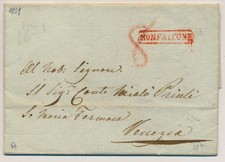 1839
MONFALCONE
8
Al Nob: Signore
Il Sig: Conte Nicolò Priuli
S. Maria Formosa
Venezia